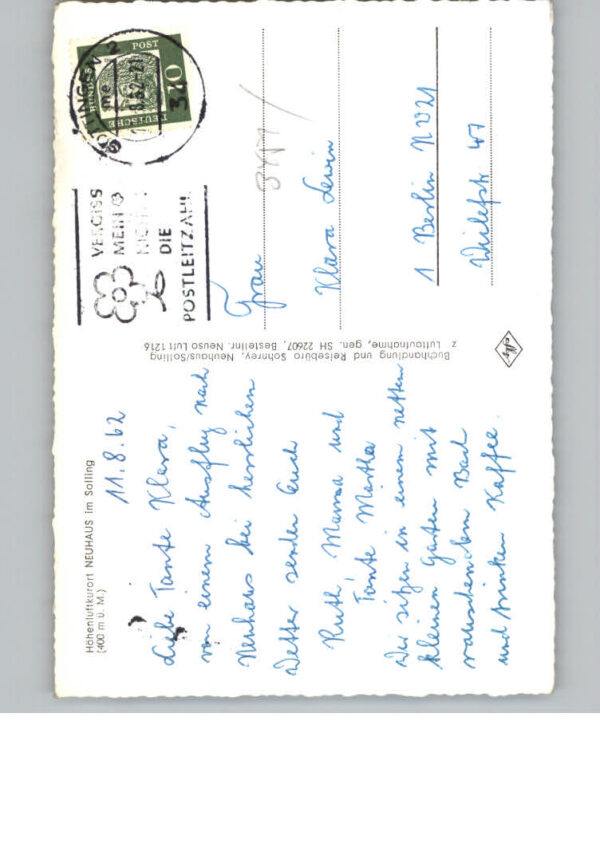 Höhenluftkurort NEUHAUS im Solling
(400 m ü. M.)
11.8.62
Liebe Tante Klara,
von einem Ausflug nach
Neuhaus bei herrlichem
Wetter senden Euch
Ruth, Mama und
Tante Martha
Wir sitzen in einem netten
kleinen Garten mit
rauschendem Bach
und trinken Kaffee.
Buchhandlung und Reisebüro Sohnrey, Neuhaus/Solling
z Luftaufnahme, gen. SH 22607, Bestellnr. Neuso Luft 1216
VERGISS
MEIN
NICHT
DIE
POSTLEITZAHL
DEUTSCHE BUNDESPOST
10
2
Frau
Klara Lewin
1 Berlin NW21
47